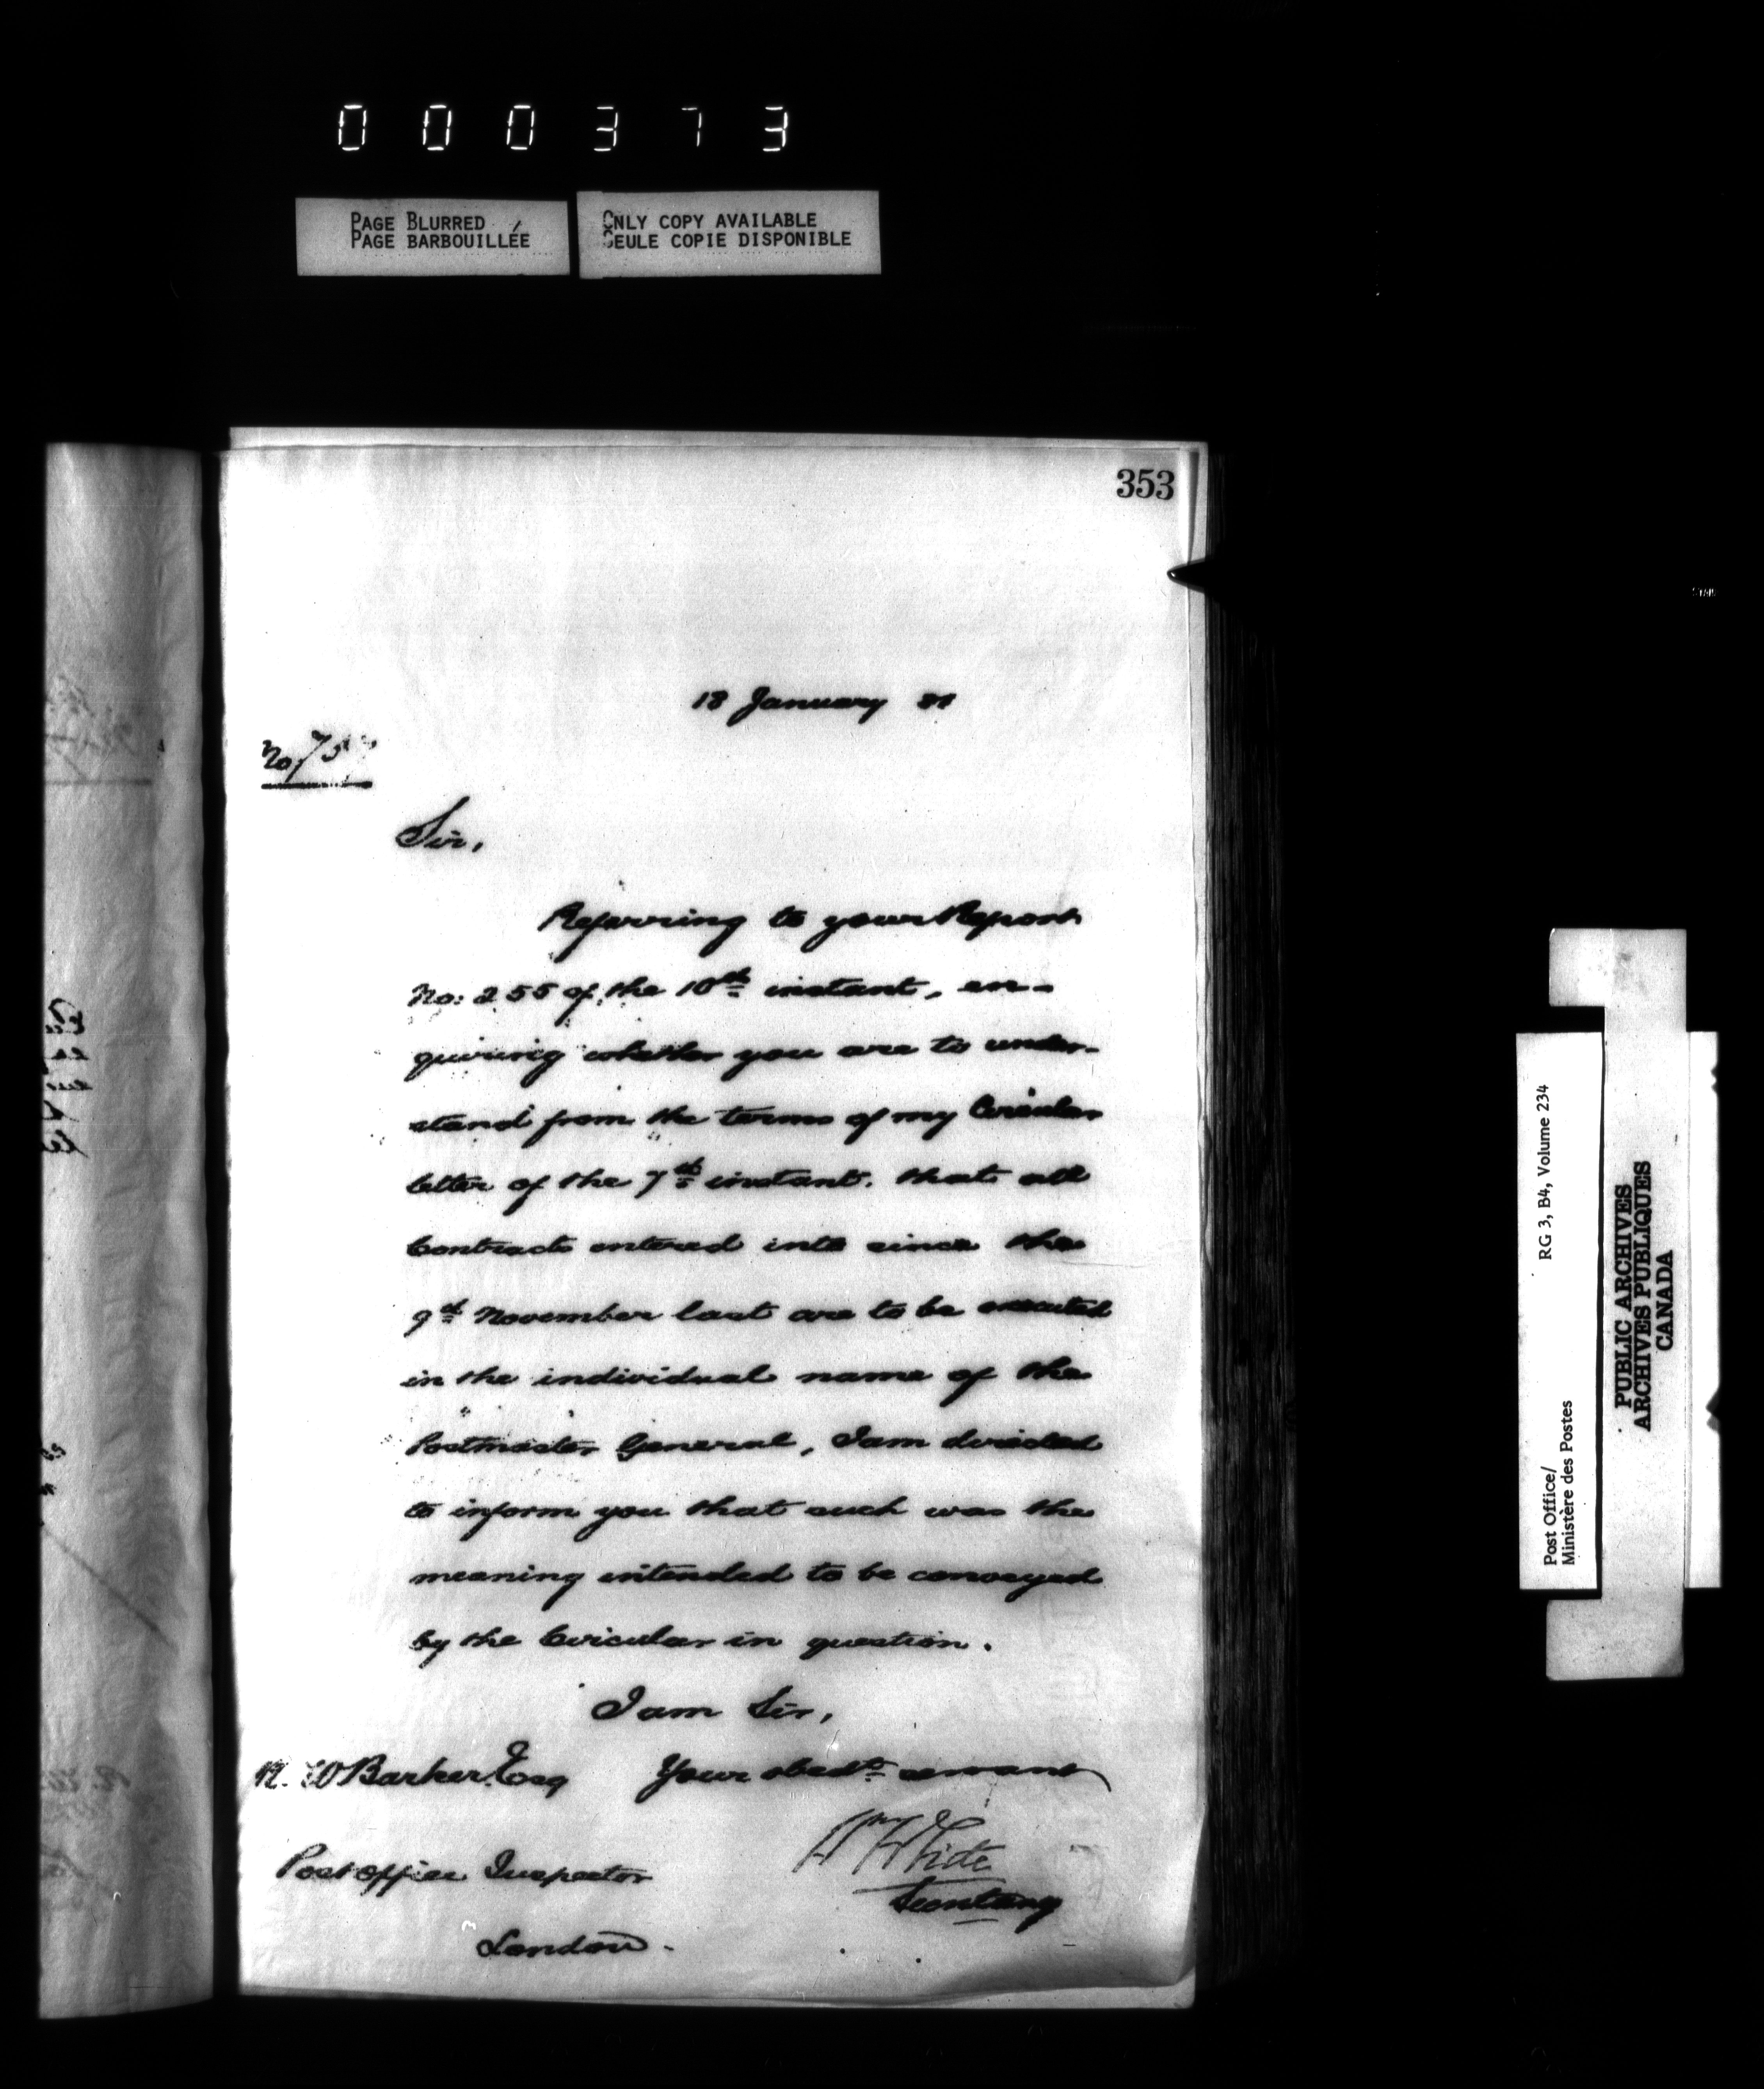 000373
PAGE BLURRED
PAGE BARBOUILLÉE
ONLY COPY AVAILABLE
SEULE COPIE DISPONIBLE
353
18 January 81
No 75
Sir,
Referring to your Report
No: 255 of the 10th instant, en-
quiring whether you are to under-
stand from the terms of my Circular
letter of the 7th instant. that all
Contracts entered into since the
9th November last are to be executed
in the individual name of the
Postmaster General, I am directed
to inform you that such was the
meaning intended to be conveyed
by the Circular in question.
I am Sir,
Your obedt servant
R. W Barker Esq
Wm White
Secretary
Post Office Inspector
London.
Post Office/
Ministère des Postes
RG 3, B4, Volume 234
PUBLIC ARCHIVES
ARCHIVES PUBLIQUES
CANADA